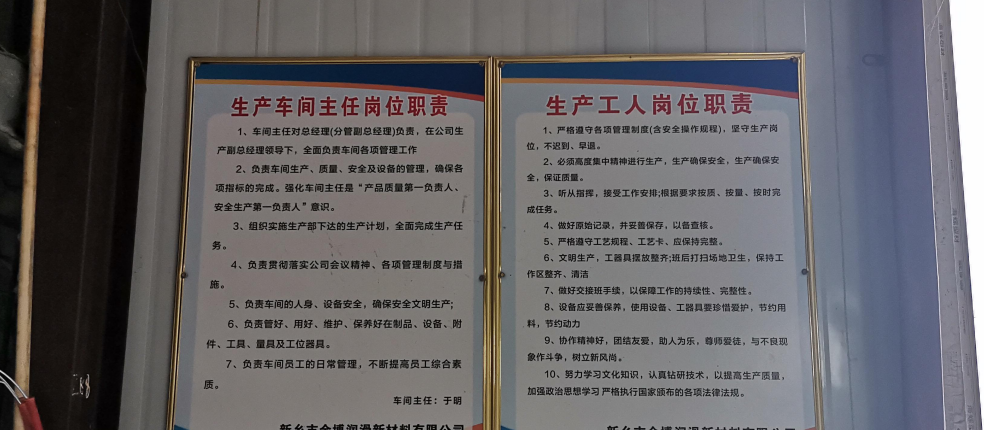 生产车间主任岗位职责
1、车间主任对总经理(分管副总经理)负责，在公司生
产副总经理领导下，全面负责车间各项管理工作
2、负责车间生产、质量、安全及设备的管理，确保各
项指标的完成。强化车间主任是“产品质量第一负责人、
安全生产第一负责人”意识。
3、组织实施生产部下达的生产计划，全面完成生产任
务。
4、负责贯彻落实公司会议精神、各项管理制度与措
施。
5、负责车间的人身、设备安全，确保安全文明生产;
6、负责管好、用好、维护、保养好在制品、设备、附
件、工具、量具及工位器具。
7、负责车间员工的日常管理，不断提高员工综合素
质。
车间主任：于明
新乡市金博润滑新材料有限公司
生产工人岗位职责
1、严格遵守各项管理制度(含安全操作规程)，坚守生产岗
位，不迟到、早退。
2、必须高度集中精神进行生产，生产确保安全，生产确保安
全，保证质量。
3、听从指挥，接受工作安排;根据要求按质、按量、按时完
成任务。
4、做好原始记录，并妥善保存，以备查核。
5、严格遵守工艺规程、工艺卡、应保持完整。
6、文明生产，工器具摆放整齐;班后打扫场地卫生，保持工
作区整齐、清洁
7、做好交接班手续，以保障工作的持续性、完整性。
8、设备应妥善保养，使用设备、工器具要珍惜爱护，节约用
料，节约动力
9、协作精神好，团结友爱，助人为乐，尊师爱徒，与不良现
象作斗争，树立新风尚。
10、努力学习文化知识，认真钻研技术，以提高生产质量，
加强政治思想学习 严格执行国家颁布的各项法律法规。
新乡市金博润滑新材料有限公司